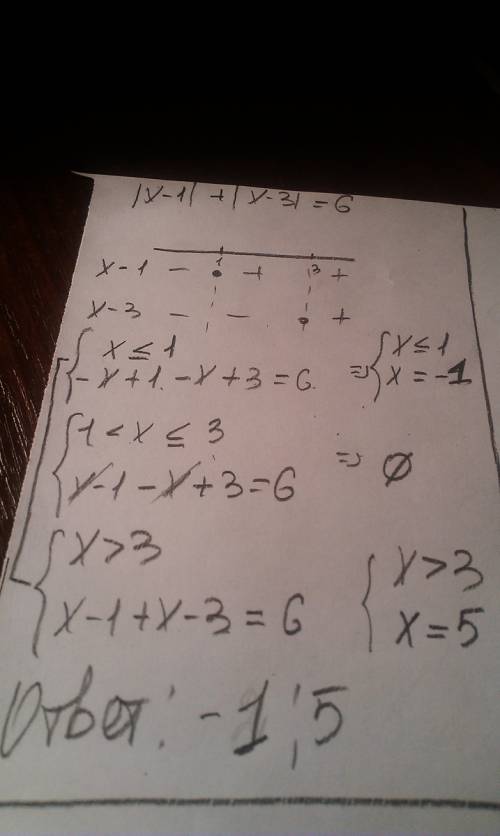 |x-1| + |x-3| = 6
1 3
x-1 - + +
x-3 - - +
{ x ≤ 1
-x+1-x+3=6 => { x ≤ 1
x = -1
{ 1 < x ≤ 3
x-1-x+3=6 => ∅
{ x > 3
x-1+x-3=6 { x > 3
x = 5
Ответ: -1; 5